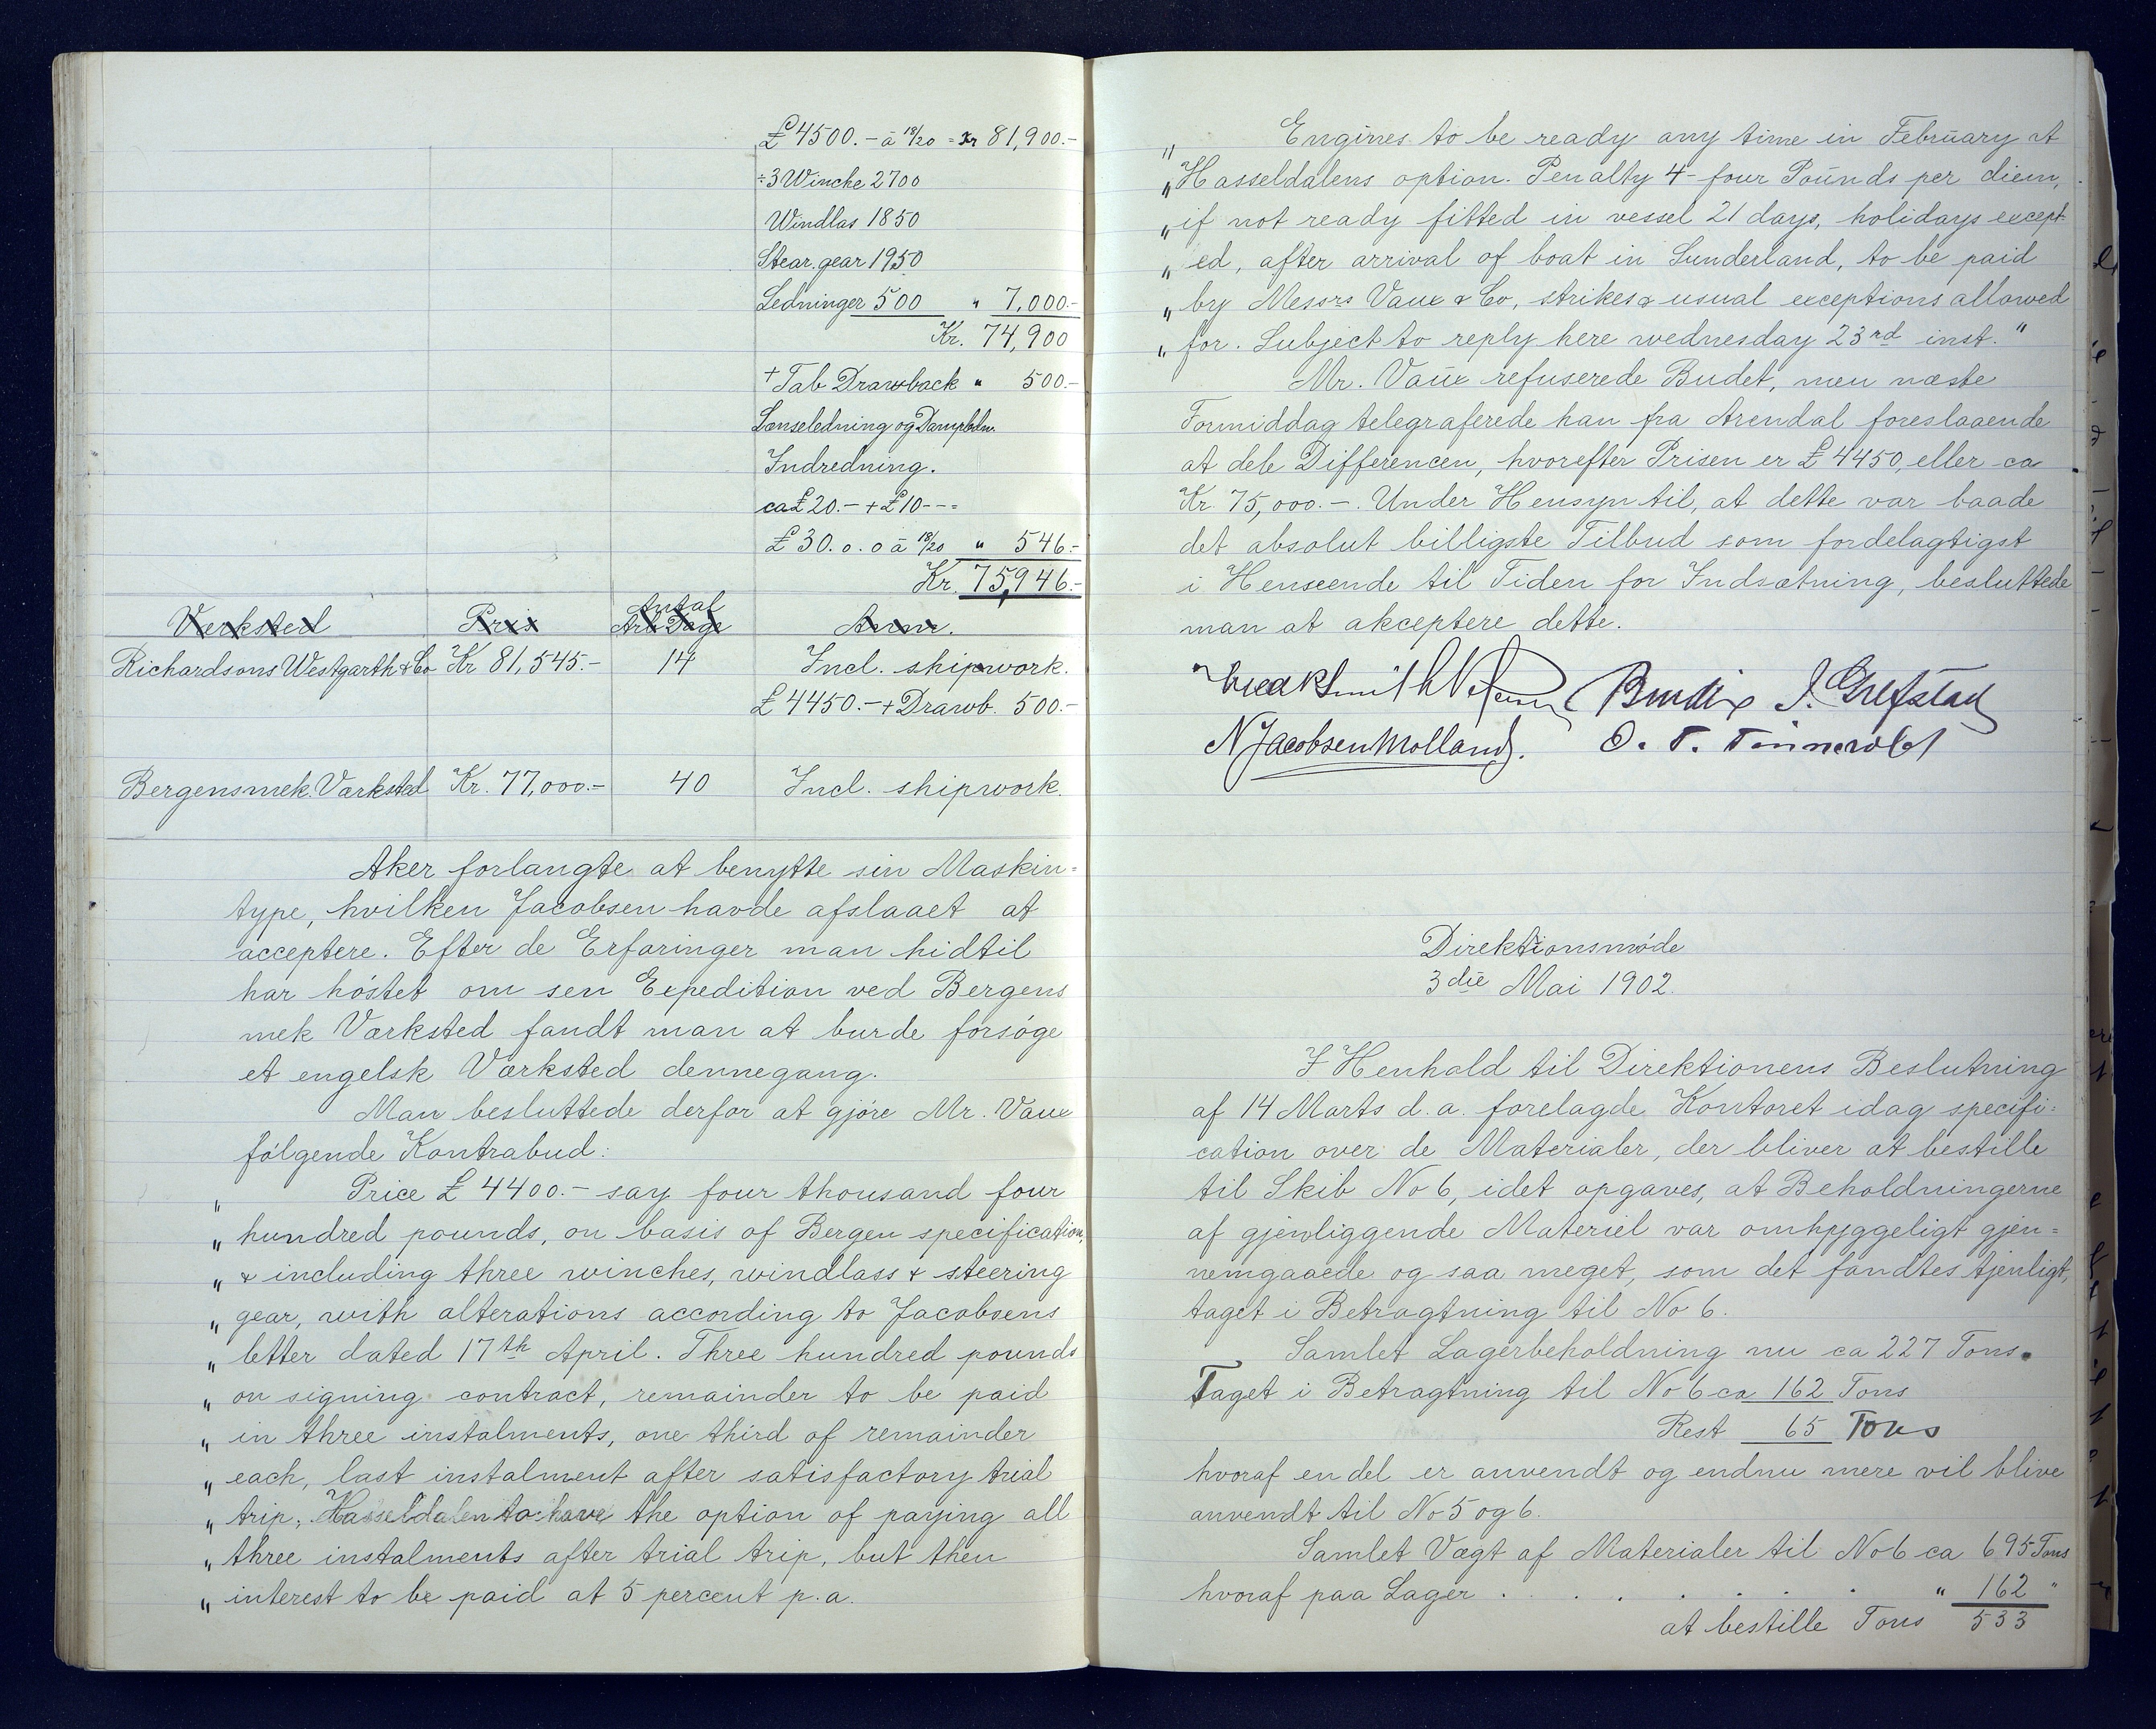 £ 4500.- à 18/20 = Kr 81,900.-
÷ 3 Winche 2700
Windlas 1850
Stear. gear 1950
Ledninger 500 " 7,000.-
Kr. 74,900
+ Tab Drawback " 500.-
Lænseledning og Dampledn.
Indredning.
ca £ 20.- + £ 10---
£ 30.0.0 à 18/20 " 546.-
Kr. 75,946.-
Værksted Pris Antal Arb. Dage Anm.
Richardsons Westgarth & Co Kr 81,545.- 14 Incl. shipwork.
£ 4450.- + Drawb. 500.-
Bergens mek. Værksted Kr. 77,000.- 40 Incl. shipwork.
Aker forlangte at benytte sin Maskin=
type, hvilken Jacobsen havde afslaaet at
acceptere. Efter de Erfaringer man hidtil
har høstet om sen Expedition ved Bergens
mek Værksted fandt man at burde forsøge
et engelsk Værksted dennegang.
Man besluttede derfor at gjøre Mr. Vaux
følgende Kontrabud:
" Price £ 4400.- say four thousand four
" hundred pounds, on basis of Bergen specification,
" & including three winches, windlass & steering
" gear, with alterations according to Jacobsens
" letter dated 17th April. Three hundred pounds
" on signing contract, remainder to be paid
" in three instalments, one third of remainder
" each, last instalment after satisfactory trial
" trip, Hasseldalen to have the option of paying all
" three instalments after trial trip, but then
" interest to be paid at 5 percent p.a.
" Engines to be ready any time in February at
" Hasseldalens option. Penalty 4- four Pounds per diem,
" if not ready fitted in vessel 21 days, holidays except-
" ed, after arrival of boat in Sunderland, to be paid
" by Messrs Vaux & Co, strikes & usual exceptions allowed
" for. Subject to reply here wednesday 23rd inst."
Mr. Vaux refuserede Budet, men næste
Formiddag telegraferede han fra Arendal foreslaaende
at dele Differencen, hvorefter Prisen er £ 4450, eller ca
Kr. 75,000.-. Under Hensyn til, at dette var baade
det absolut billigste Tilbud som fordelagtigst
i Henseende til Tiden for Indsætning, besluttede
man at akceptere dette.
Bendix J. Grefstad
N Jacobsen Molland. O. T. Tønnevold
Direktionsmøde
3die Mai 1902.
I Henhold til Direktionens Beslutning
af 14 Marts d.a. forelagde Kontoret idag specifi=
cation over de Materialer, der bliver at bestille
til Skib No 6, idet opgaves, at Beholdningerne
af gjenliggende Materiel var omhyggeligt gjen=
nemgaaede og saa meget, som det fandtes tjenligt,
taget i Betragtning til No 6.
Samlet Lagerbeholdning nu ca 227 Tons.
Taget i Betragtning til No 6 ca 162 Tons
Rest 65 Tons
hvoraf en del er anvendt og endnu mere vil blive
anvendt til No 5 og 6.
Samlet Vægt af Materialer til No 6 ca 695 Tons
hvoraf paa Lager . . . . . . " 162 "
at bestille Tons 533